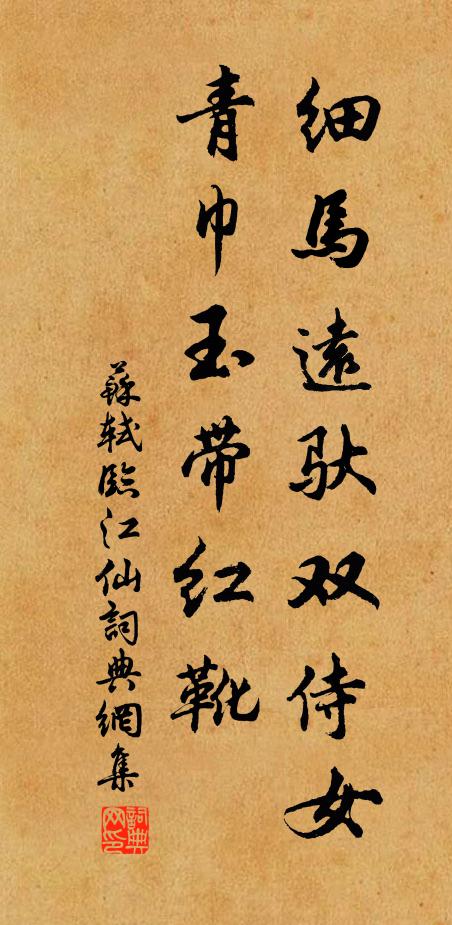 细馬遠驮双侍女
青巾玉带红靴
蘇軾臨江仙詞典網集
詞典网印